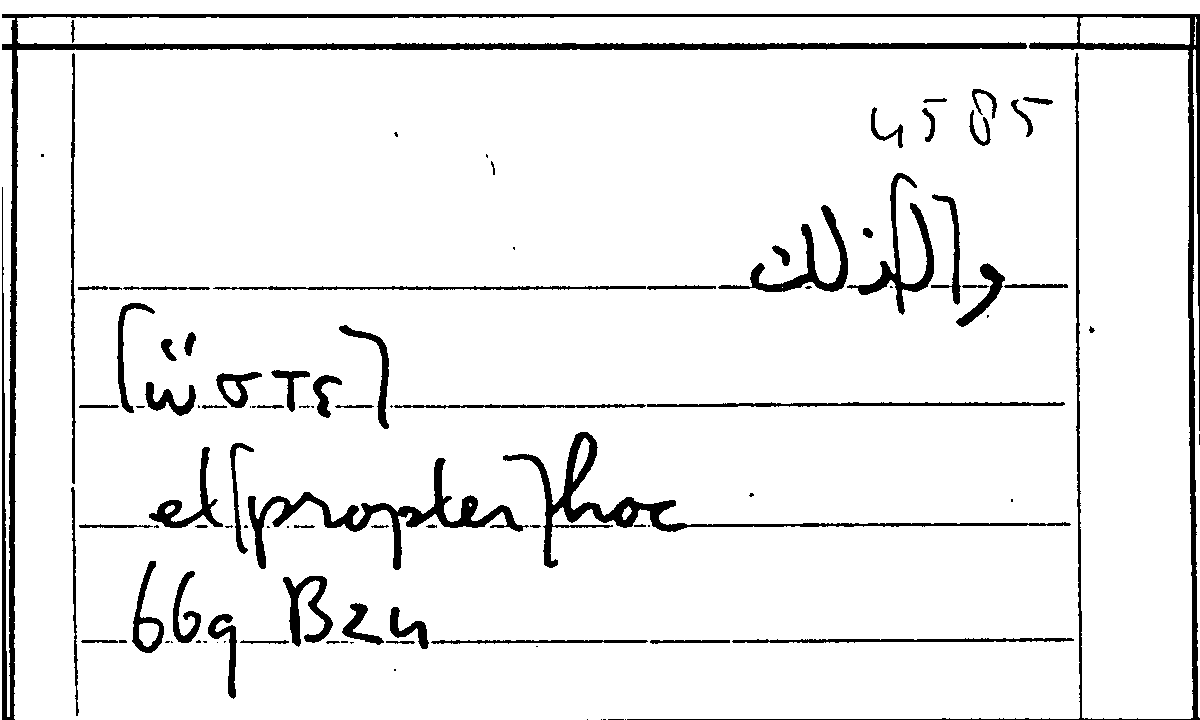 4585
و[ل]ذلك
[ὥστε]
et [propter] hoc
669 B24